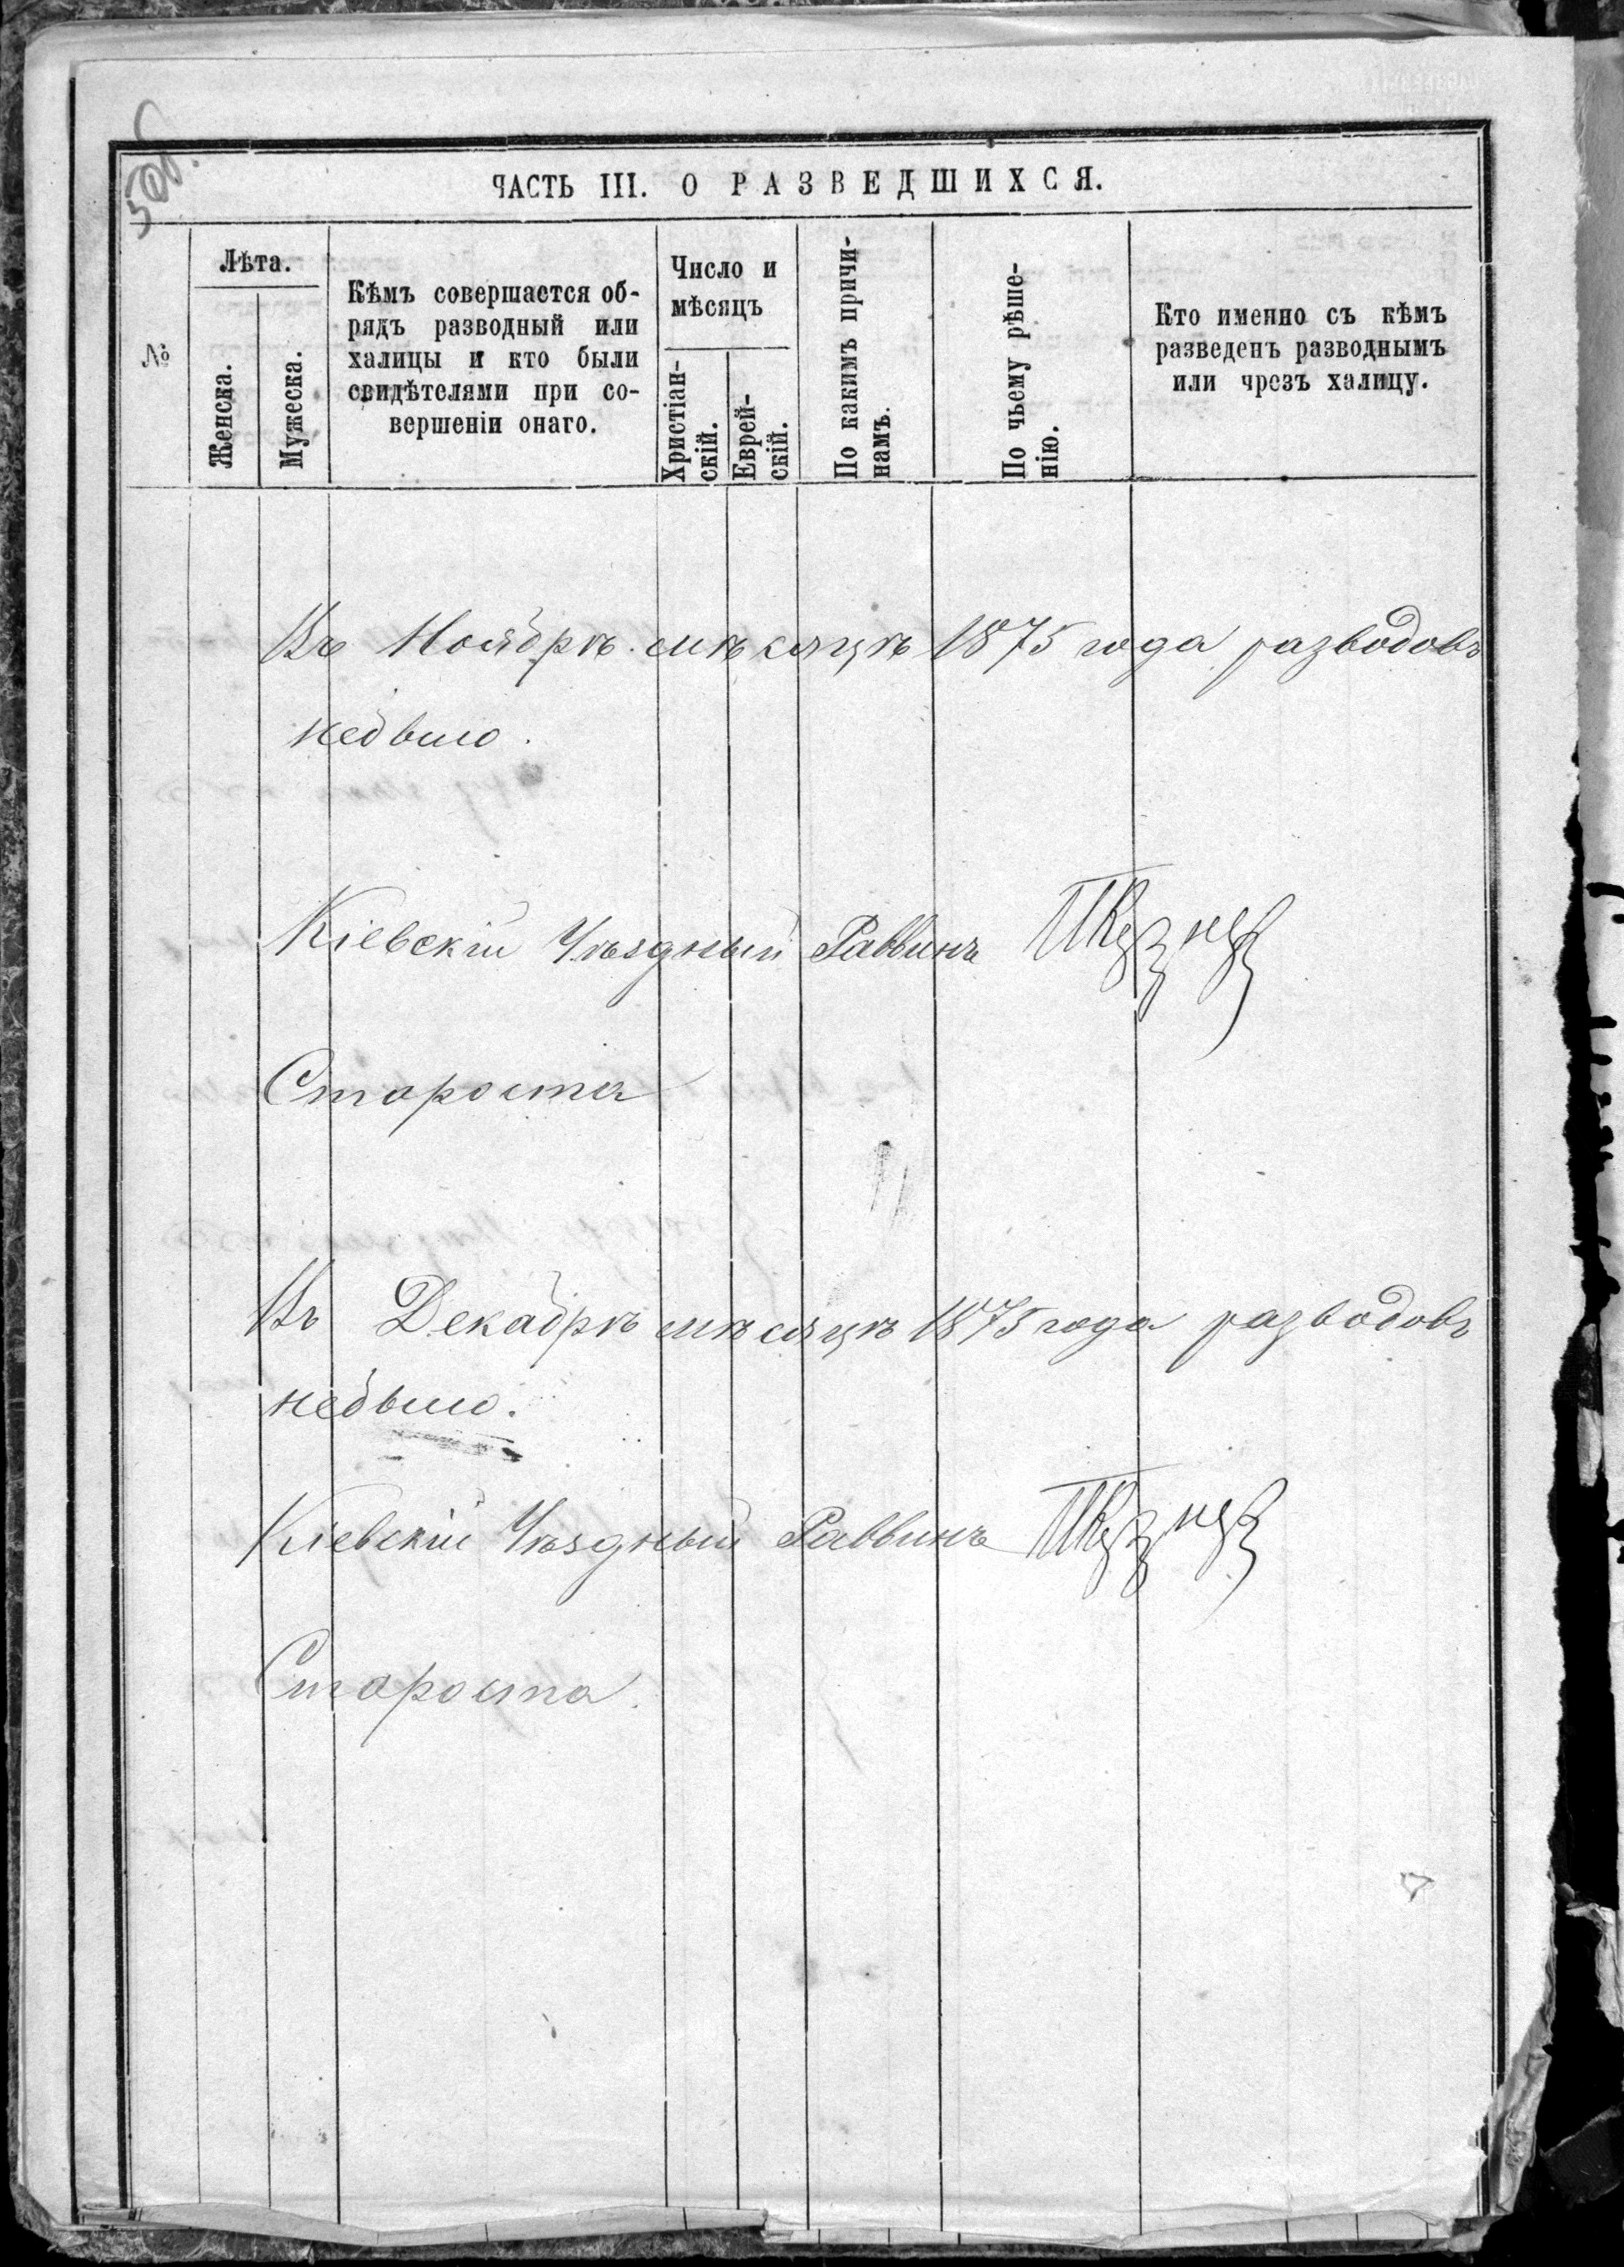 50б.
ЧАСТЬ III. О РАЗВЕДШИХСЯ.
№
Лѣта.
Женска.
Мужеска.
Кѣмъ совершается об-
рядъ разводный или
халицы и кто были
свидѣтелями при со-
вершеніи онаго.
Число и
мѣсяцъ
Христіан-
скій.
Еврей-
скій.
По какимъ причи-
намъ.
По чьему рѣше-
нію.
Кто именно съ кѣмъ
разведенъ разводнымъ
или чрезъ халицу.
Въ Ноябрѣ мѣсяцѣ 1875 года разводовъ
небыло.
Кіевскій Уѣздный Раввинъ
Староста
Въ Декабрѣ мѣсяцѣ 1875 года разводовъ
небыло.
Кіевскій Уѣздный Раввинъ
Староста